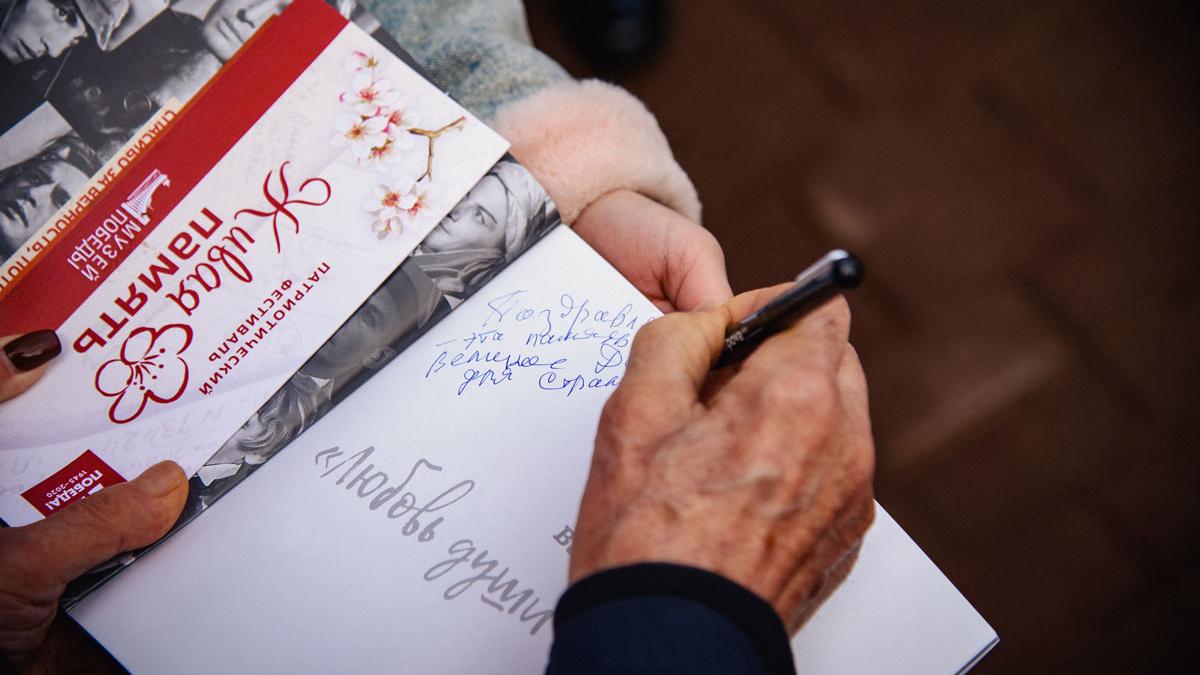 СПАСИБО ЗА ВЕРНОСТЬ,
МУЗЕЙ
ПОБЕДЫ
Живая
память
ПАТРИОТИЧЕСКИЙ
ФЕСТИВАЛЬ
ПОБЕДА!
1945-2020
Поздравл
- эта память
великое
для Стран
«Любовь души